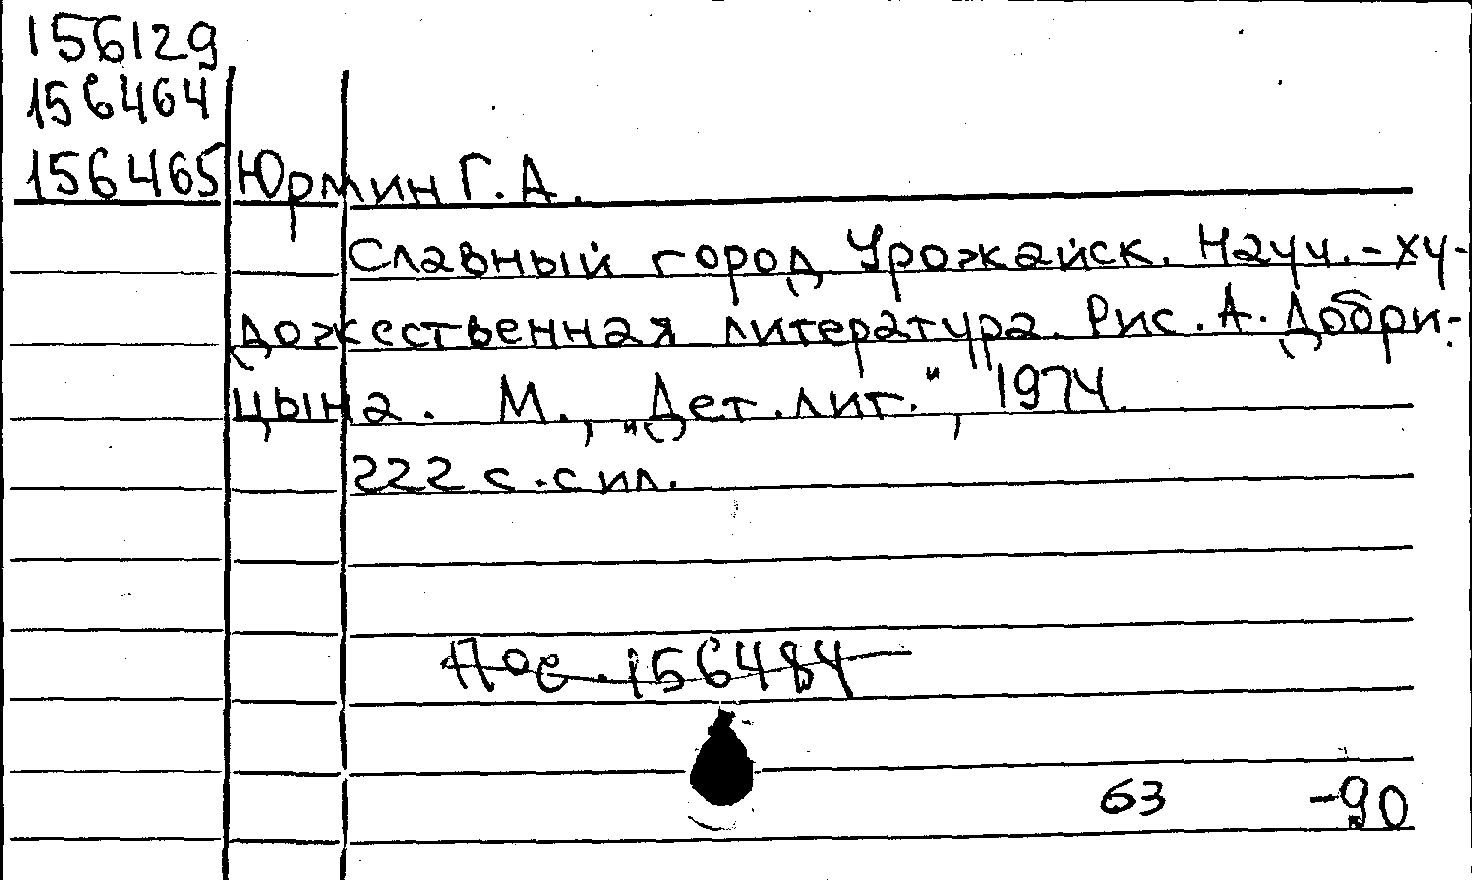 156129
156464
156465 Юрмин Г. А.
Славный город Урожайск. Науч.-ху-
дожественная литература. Рис. А. Добри-
цына. М., „Дет. лит.", 1974.
222 с. с ил.
Пос. 156484
63 -90